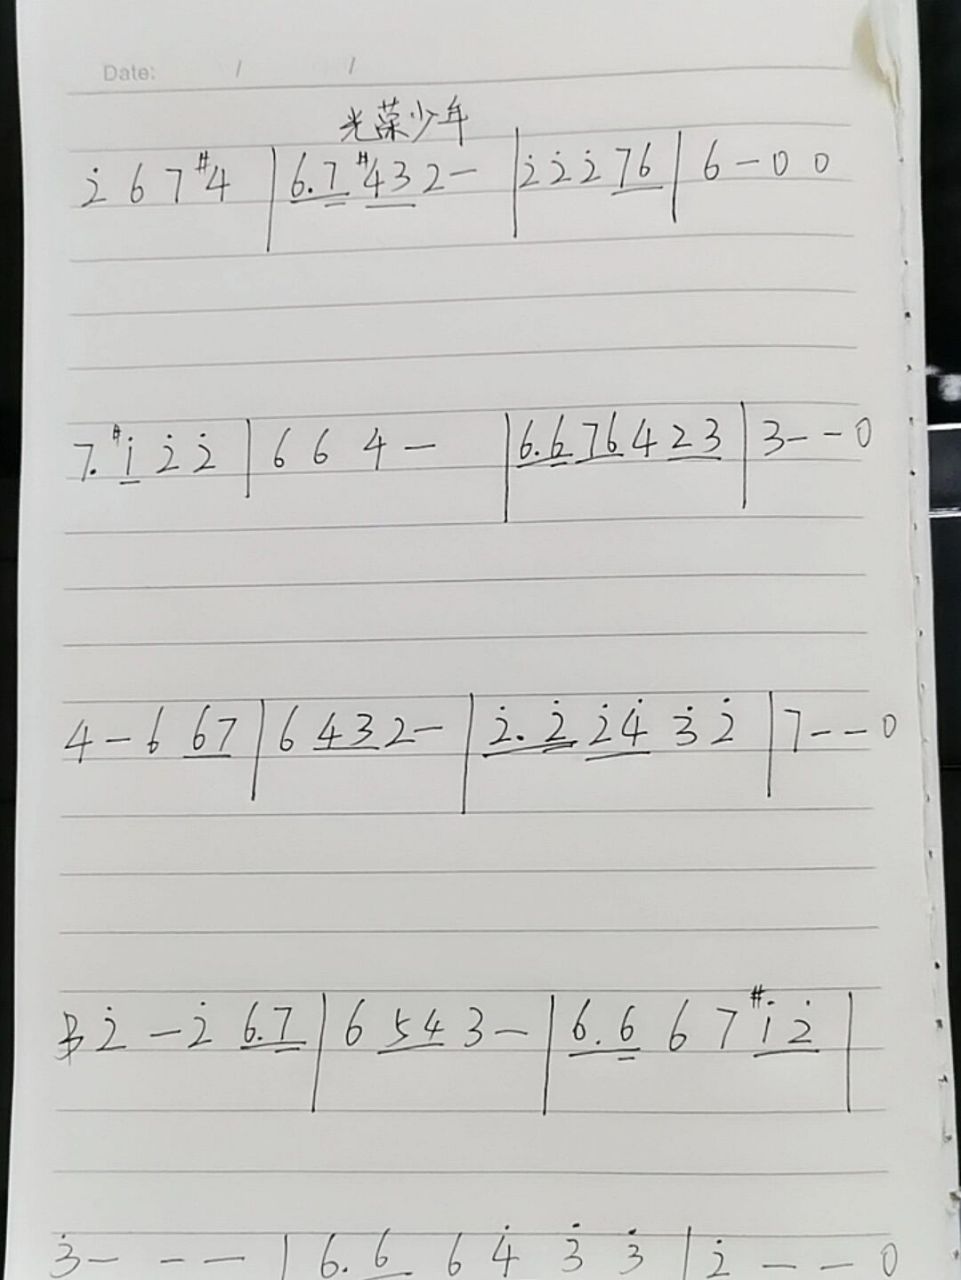 Date: / /
光荣少年
2̇ 6 7 #4 | 6. 7 #4 3 2 - | 2̇ 2̇ 2̇ 7 6 | 6 - 0 0
7. #1̇ 2̇ 2̇ | 6 6 4 - | 6. 6 7 6 4 2 3 | 3 - - 0
4 - 6 6 7 | 6 4 3 2 - | 2̇. 2̇ 2̇ 4̇ 3̇ 2̇ | 7 - - 0
2̇ - 2̇ 6. 7 | 6 5 4 3 - | 6. 6 6 7 #1̇ 2̇ |
3̇ - - - | 6. 6 6 4̇ 3̇ 3̇ | 2̇ - - 0